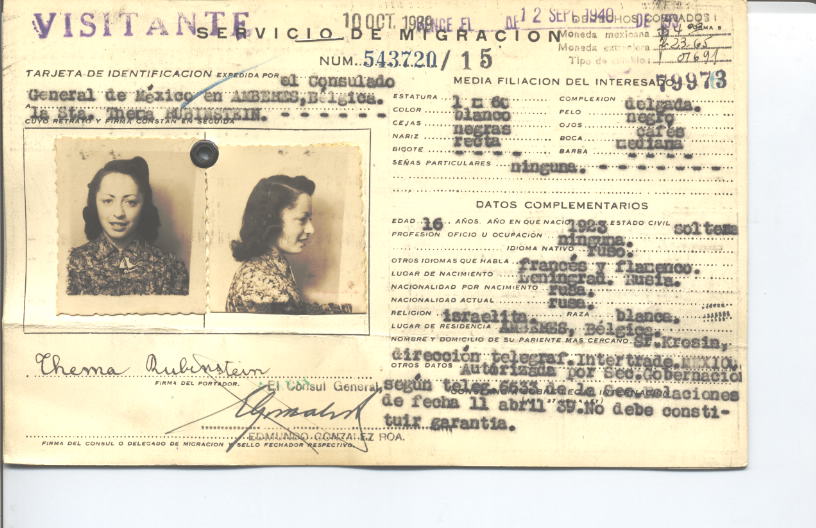 VISITANTE
SERVICIO DE MIGRACION
10 OCT. 1939
VENCE EL DE 12 SEPT. 1940 DE
DERECHOS COBRADOS:
Moneda mexicana
Moneda extranjera
Tipo de cambio
NUM. 543720/15
59973
TARJETA DE IDENTIFICACION EXPEDIDA POR el Consulado
General de México en AMBERES, Bélgica.
A la Sta. Thema RUBINSTEIN.
CUYO RETRATO Y FIRMA CONSTAN EN SEGUIDA
MEDIA FILIACION DEL INTERESADO
ESTATURA 1 m 60 COMPLEXION delgada.
COLOR blanco PELO negro
CEJAS negras OJOS cafés
NARIZ recta BOCA mediana
BIGOTE - - - - BARBA - - - -
SEÑAS PARTICULARES ninguna.
DATOS COMPLEMENTARIOS
EDAD 16 AÑOS. AÑO EN QUE NACIO 1923 ESTADO CIVIL soltera
PROFESION OFICIO U OCUPACION ninguna.
IDIOMA NATIVO ruso.
OTROS IDIOMAS QUE HABLA francés y flamenco.
LUGAR DE NACIMIENTO Leningrad. Rusia.
NACIONALIDAD POR NACIMIENTO rusa.
NACIONALIDAD ACTUAL rusa.
RELIGION israelita. RAZA blanca.
LUGAR DE RESIDENCIA AMBERES, Bélgica.
NOMBRE Y DOMICILIO DE SU PARIENTE MAS CERCANO Sr. Krosin,
dirección telegraf. Intertrade. MEXICO.
OTROS DATOS Autorizada por Sec. Gobernacion
según teleg. 6633 de la Sec. Relaciones
de fecha 11 abril 39. No debe consti-
tuir garantia.
Thema Rubinstein
FIRMA DEL PORTADOR.
El Consul General,
EDMUNDO GONZALEZ ROA.
FIRMA DEL CONSUL O DELEGADO DE MIGRACION Y SELLO FECHADOR RESPECTIVO.